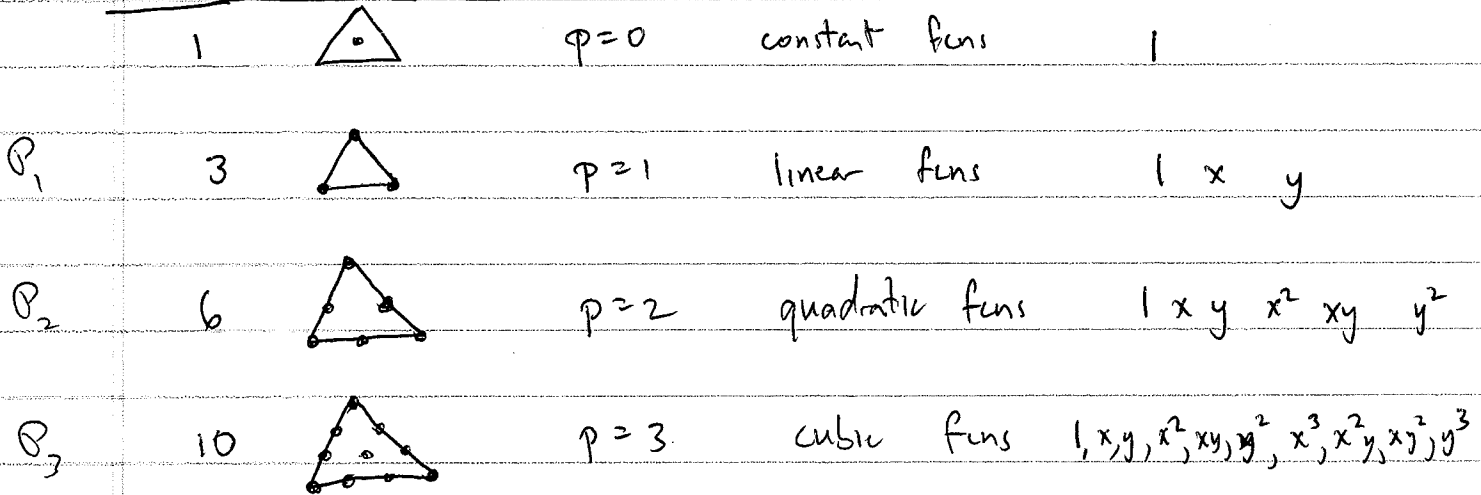 1 p=0 constant fcns 1
P₁ 3 p=1 linear fcns 1 x y
P₂ 6 p=2 quadratic fcns 1 x y x² xy y²
P₃ 10 p=3. cubic fcns 1,x,y,x²,xy,y²,x³,x²y,xy²,y³